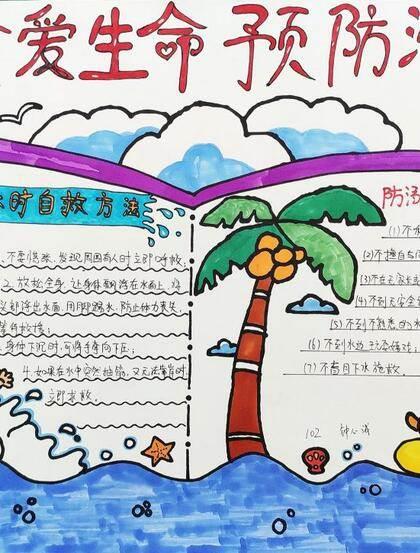 爱生命预防溺
时自救方法
、不要慌张、发现周围有人时立即呼救;
2、放松全身、让身体飘浮在水面上、将
部浮出水面、用脚踢水、防止体力丧失、
等待救援;
身体下沉时、可将手掌向下压;
4、如果在水中突然抽筋、又无法靠岸时
立即求救。
防溺
(1)不
(2)不擅自与
(3)不在无家长
(4)不到无安全
(5)不到不熟悉的水
(6)不到水边玩耍嬉戏;
(7)不盲目下水施救。
102 钟